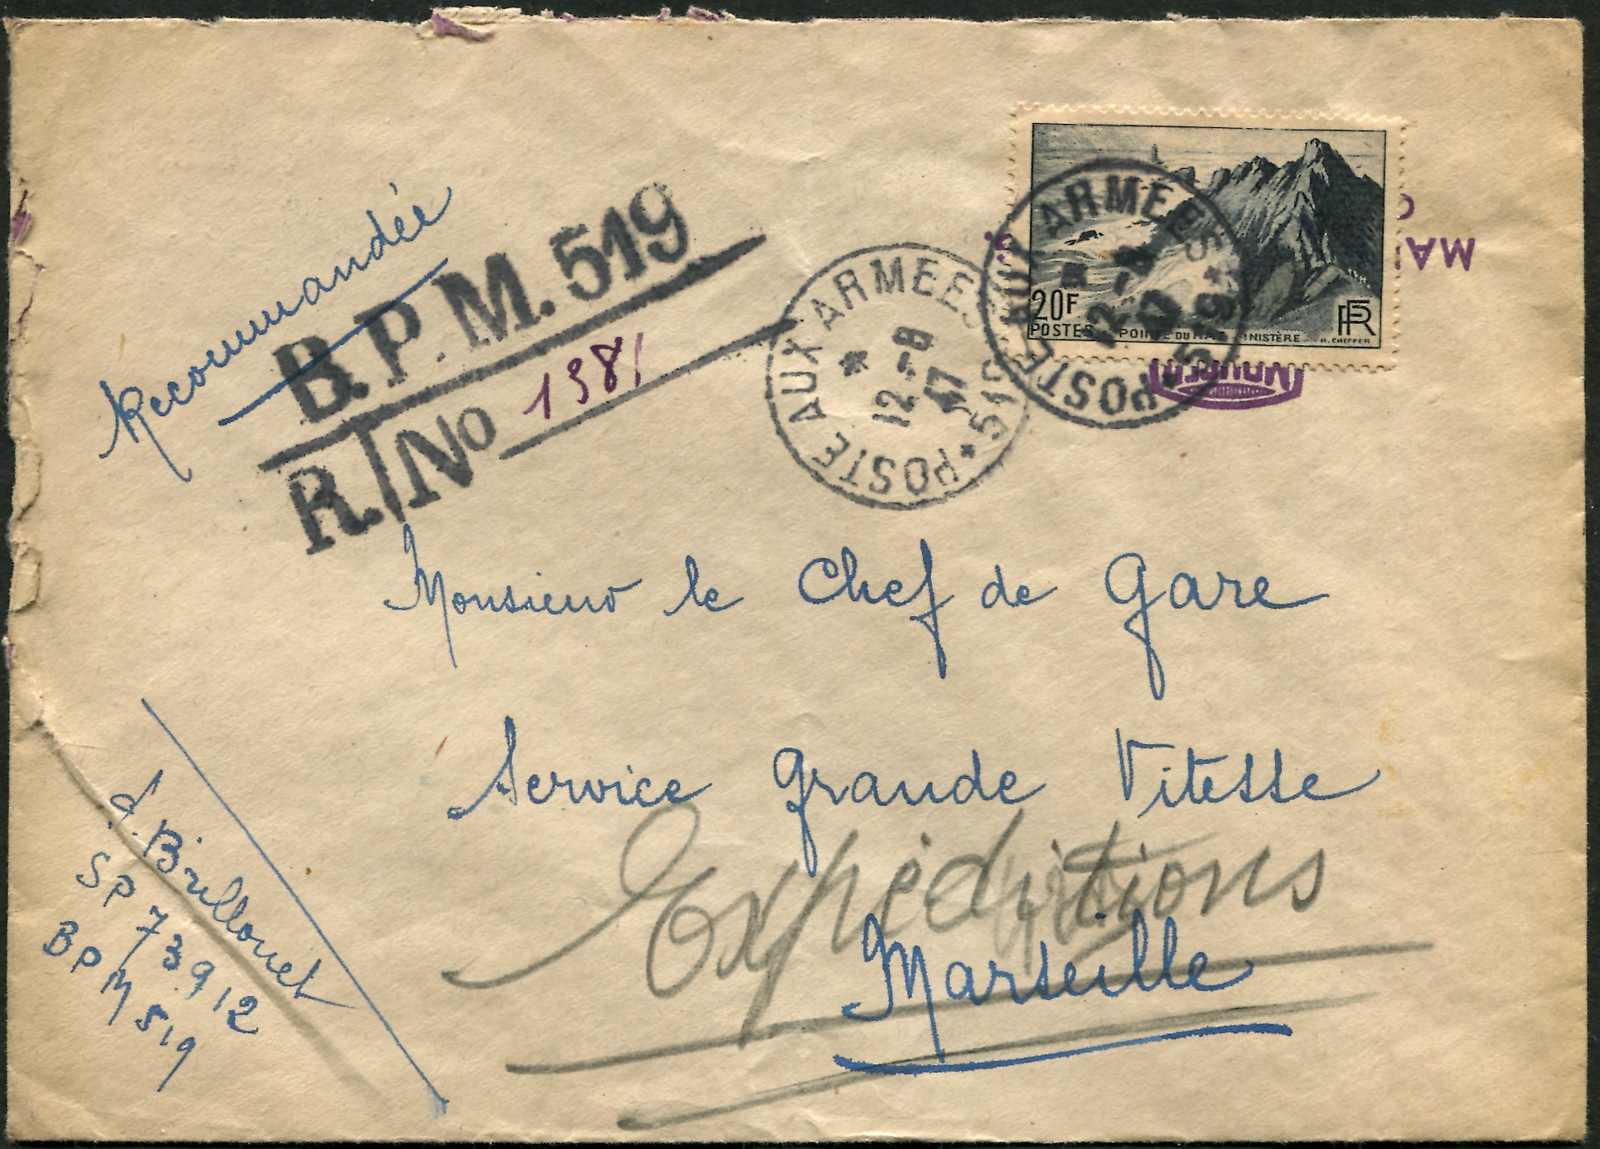 Recommandée
B.P.M. 519
R. No 1381
POSTE AUX ARMEES * 519 *
12-8
47
POSTE AUX ARMEES * 519 *
12-8
47
20F
POSTES
POINTE DU RAZ FINISTÈRE
RF
MA
Monsieur le Chef de Gare
Service Grande Vitesse
Expéditions
Marseille
Brillouet
SP 73.912
BPM 519